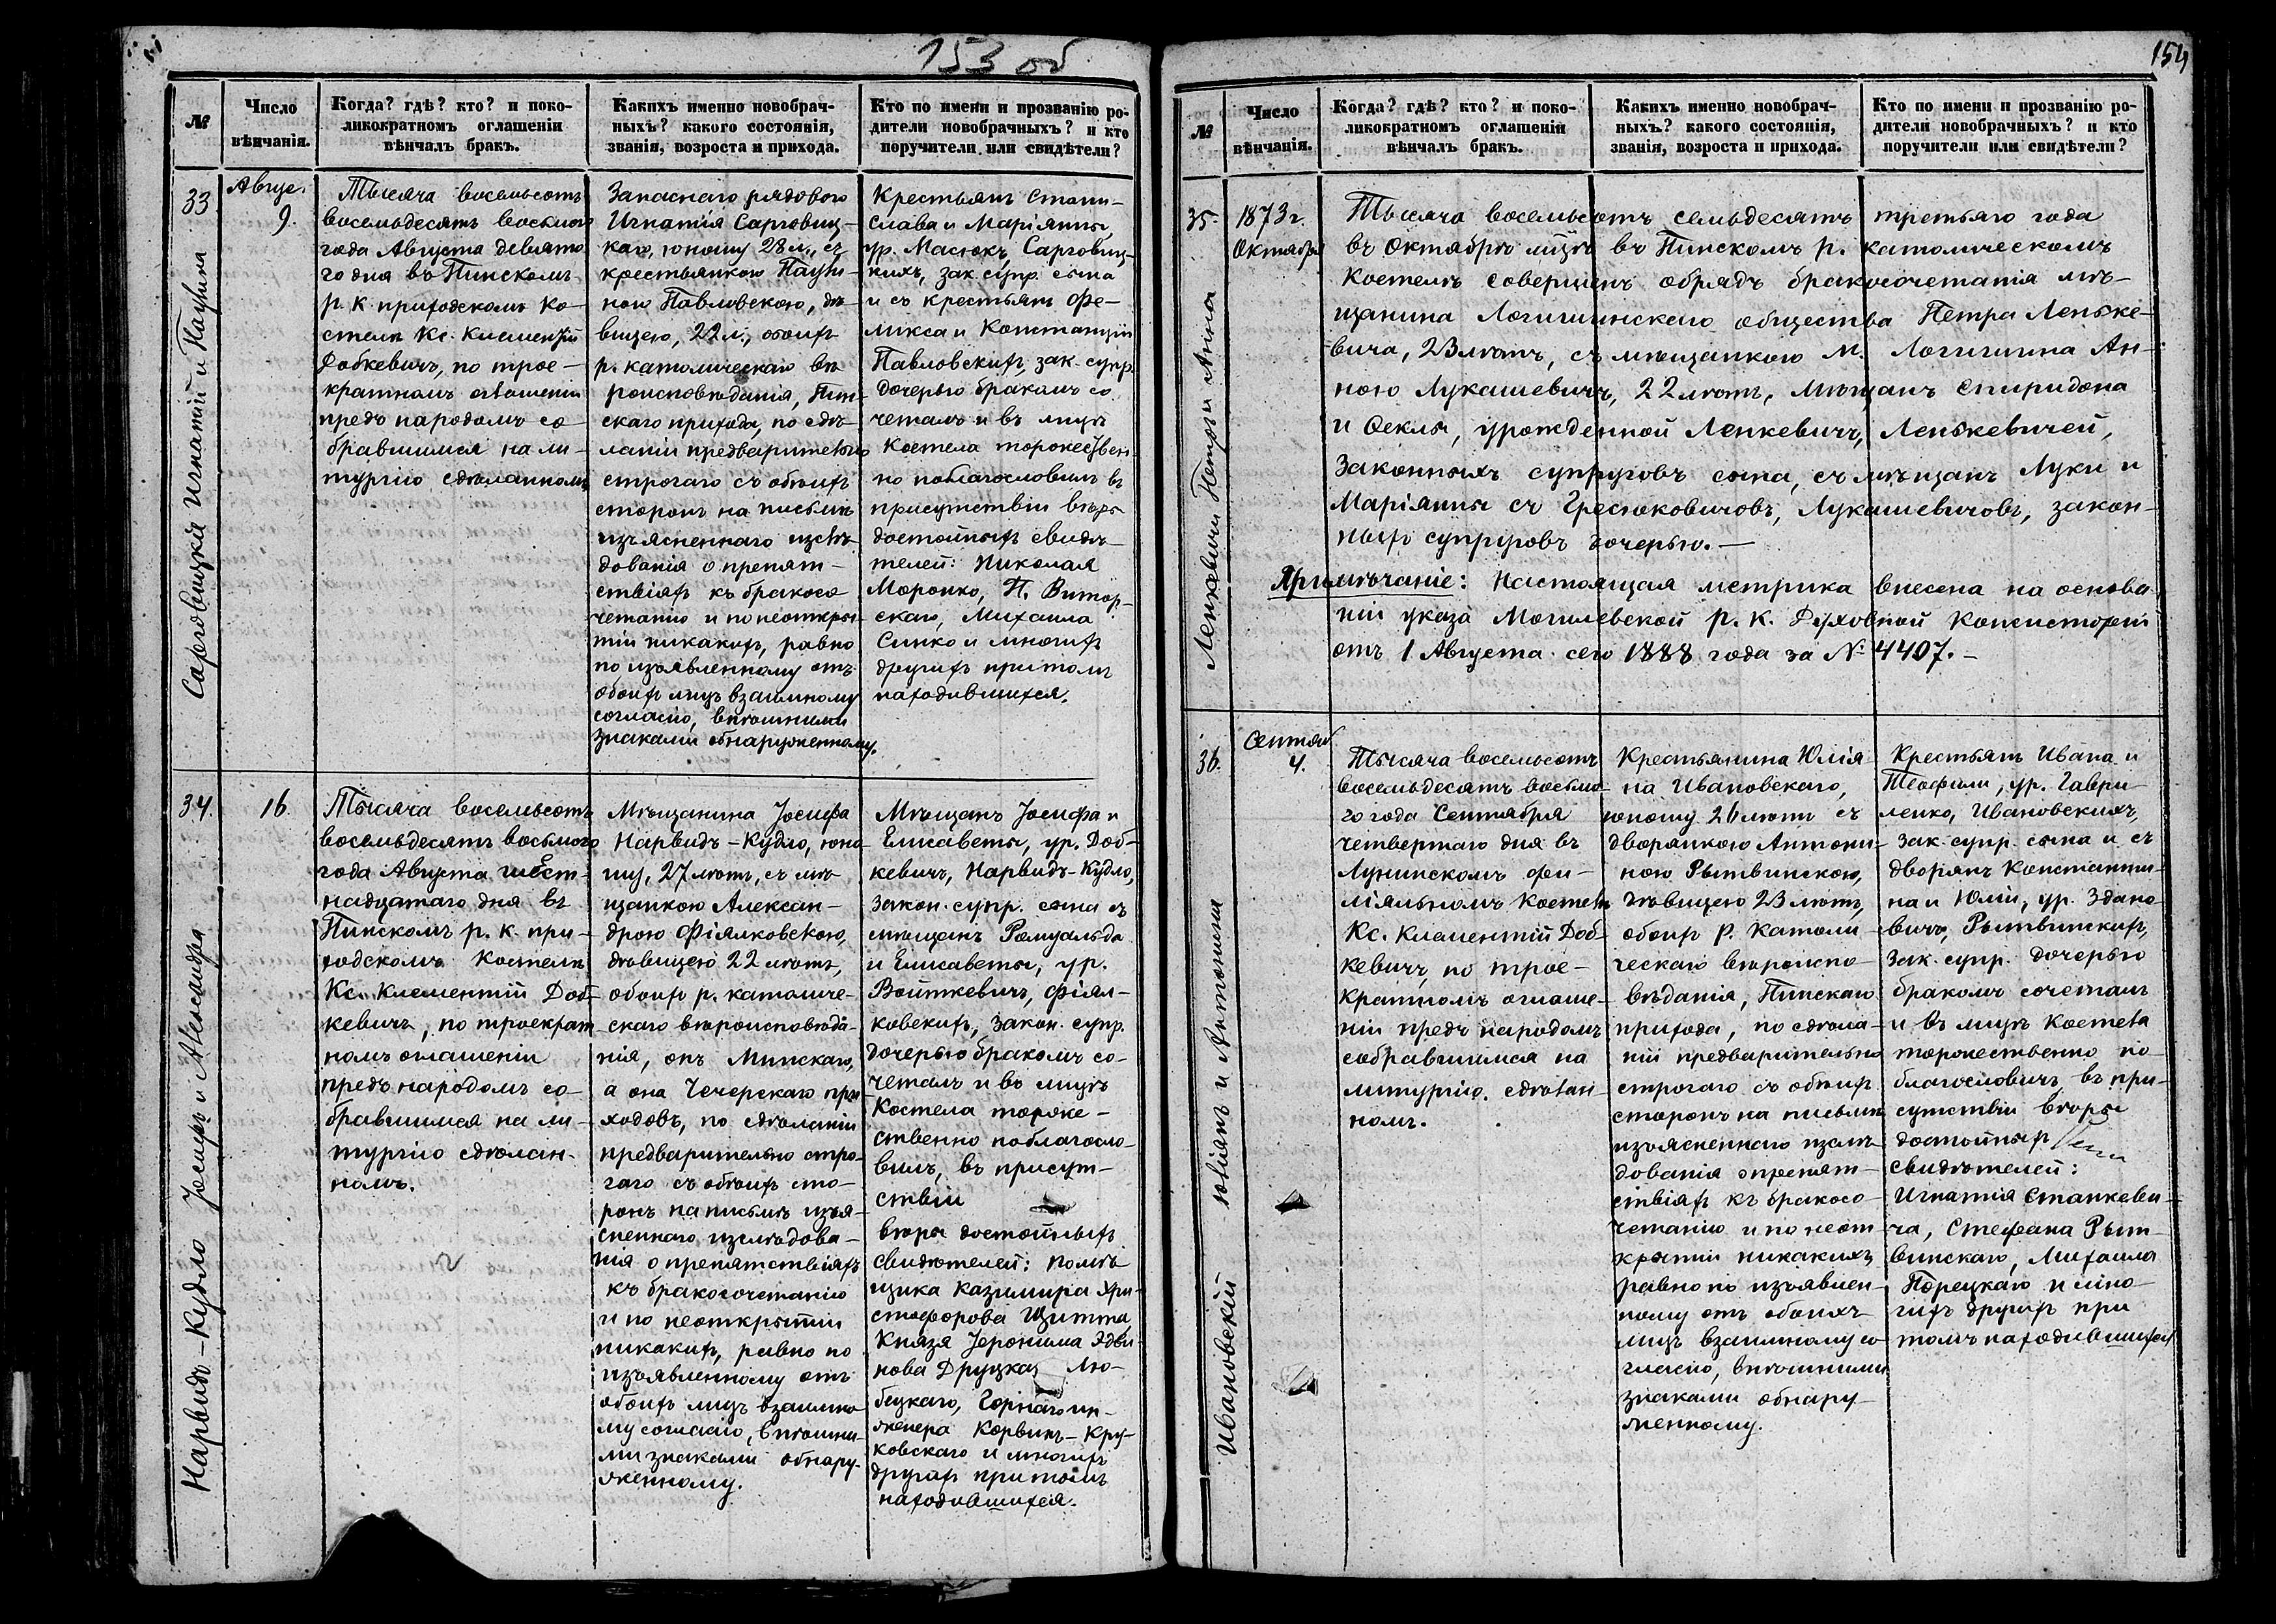 153 об
№
Число
вѣнчанія.
Когда? гдѣ? кто? и поко-
ликократномъ оглашеніи
вѣнчалъ бракъ.
Какихъ именно новобрач-
ныхъ? какого состоянія,
званія, возроста и прихода.
Кто по имени и прозванію ро-
дители новобрачныхъ? и кто
поручители или свидѣтели?
33
Саргавицкіе Игнатій и Паулина
Авгус.
9.
Тысяча восемьсотъ
восемьдесятъ восьмого
года Августа девято
го дня въ Пинскомъ
р. к. приходскомъ Ко-
стелѣ Кс. Климентій
Добкевичъ, по трое-
кратномъ оглашеніи
предъ народомъ со-
бравшимся на ли-
тургію сдѣланномъ
Запаснаго рядового
Игнатія Сарговиц-
каго, юношу 28 л., съ
крестьянкою Паули-
ною Павловскою, дѣ-
вицею, 22 л., обоихъ
р. католическаго вѣ
роисповѣданія, Пин-
скаго прихода, по сдѣ-
ланіи предварительно
строгаго съ обоихъ
сторонъ на письмѣ
изъясненнаго изслѣ-
дованія о препят-
ствіяхъ къ бракосо
четанію и по неоткры-
тіи никакихъ, равно
по изъявленному отъ
обоихъ лицъ взаимному
согласію, внѣшними
знаками обнаруженному.
Крестьянъ Стани-
слава и Маріянны,
ур. Масюкъ, Сарговиц-
кихъ, зак. супр. сына
и съ крестьянъ Фе-
ликса и Констанціи
Павловскихъ, зак. супр.
дочерью бракомъ со
четалъ и въ лицѣ
Костела торжествен-
но поблагословилъ въ
присутствіи вѣры
достойныхъ свидѣ-
телей: Николая
Моронко, П. Витор-
скаго, Михаила
Синко и многихъ
другихъ притомъ
находившихся.
34.
Нарвидъ-Кудло Іосифъ и Александра
16
Тысяча восемьсотъ
восемьдесятъ восьмого
года Августа шест-
надцатаго дня въ
Пинскомъ р. к. при-
ходскомъ Костелѣ
Кс. Климентій Доб-
кевичъ, по троекрат
номъ оглашеніи
предъ народомъ со-
бравшимся на ли-
тургію сдѣлан-
номъ.
Мѣщанина Іосифа
Нарвидъ-Кудло, юно-
шу, 27 лѣтъ, съ мѣ-
щанкою Алексан-
дрою Фіялковскою,
дѣвицею 22 лѣтъ,
обоихъ р. католиче-
скаго вѣроисповѣда-
нія, онъ Минскаго,
а она Чечерскаго при-
ходовъ, по сдѣланіи
предварительно стро-
гаго съ обоихъ сто-
ронъ на письмѣ изъя-
сненнаго изслѣдова-
нія о препятствіяхъ
къ бракосочетанію
и по неоткрытіи
никакихъ, равно по
изъявленному отъ
обоихъ лицъ взаимно
му согласію, внѣшни-
ми знаками обнару-
женному.
Мѣщанъ Іосифа и
Елисаветы, ур. Доб-
кевичъ, Нарвидъ-Кудло,
закон. супр. сына съ
мѣщанъ Ромуальда
и Елисаветы, ур.
Войткевичъ, Фіял-
ковскихъ, закон. супр.
дочерью бракомъ со-
четалъ и въ лицѣ
Костела торже-
ственно поблагосло-
вилъ, въ присут-
ствіи
вѣры достойныхъ
свидѣтелей: помѣ-
щика Казимира Хри-
стофорова Щитта,
Князя Іеронима Эдви-
нова Друцкаго Лю-
бецкаго, Горнаго ин-
женера Корвинъ-Кру-
ковскаго и многихъ
другихъ притомъ
находившихся.
154
№
Число
вѣнчанія.
Когда? гдѣ? кто? и поко-
ликократномъ оглашеніи
вѣнчалъ бракъ.
Какихъ именно новобрач-
ныхъ? какого состоянія,
званія, возроста и прихода.
Кто по имени и прозванію ро-
дители новобрачныхъ? и кто
поручители или свидѣтели?
35.
Ленкевичи Петръ и Анна
1873 г.
Октября
Тысяча восемьсотъ семьдесятъ третьяго года
въ Октябрѣ мцѣ въ Пинскомъ р. католическомъ
Костелѣ совершенъ обрядъ бракосочетанія мѣ-
щанина Логишинскаго общества Петра Ленке-
вича, 23 лѣтъ, съ мѣщанкою м. Логишина Ан-
ною Лукашевичъ, 22 лѣтъ, Мѣщанъ Спиридона
и Феклы, урожденной Ленкевичъ, Ленкевичей,
законныхъ супруговъ сына, съ мѣщанъ Луки и
Маріянны съ Гресюковичовъ, Лукашевичовъ, закон-
ныхъ супруговъ дочерью.—
Примѣчаніе: Настоящая метрика внесена на основа
ніи указа Могилевской р. к. Духовной Консисторіи
отъ 1 Августа сего 1888 года за № 4407.—
36.
Ивановскій Юліанъ и Антонина
Сентяб.
4.
Тысяча восемьсотъ
восемьдесятъ восьмо-
го года Сентября
четвертаго дня въ
Лунинскомъ фи-
ліяльномъ Костелѣ
Кс. Климентій Доб-
кевичъ, по трое-
кратномъ оглаше-
ніи предъ народомъ
собравшимся на
литургію сдѣлан-
номъ.
Крестьянина Юлія-
на Ивановскаго,
юношу 26 лѣтъ съ
дворянкою Антони-
ною Рытвинскою,
дѣвицею 23 лѣтъ,
обоихъ р. католи-
ческаго вѣроиспо-
вѣданія, Пинскаго
прихода, по сдѣла-
ніи предварительно
строгаго съ обоихъ
сторонъ на письмѣ
изъясненнаго изслѣ-
дованія о препят-
ствіяхъ къ бракосо-
четанію и по неот-
крытіи никакихъ,
равно по изъявлен-
ному отъ обоихъ
лицъ взаимному со-
гласію, внѣшними
знаками обнару-
женному.
Крестьянъ Ивана и
Теофили, ур. Гаври-
ленко, Ивановскихъ,
зак. супр. сына и съ
дворянъ Константи-
на и Юліи, ур. Здано-
вичъ, Рытвинскихъ,
зак. супр. дочерью
бракомъ сочеталъ
и въ лицѣ Костела
торжественно по-
благословилъ, въ при-
сутствіи вѣры
достойныхъ
свидѣтелей:
Игнатія Станкеви-
ча, Стефана Рыт-
винскаго, Михаила
Порецкаго и мно-
гихъ другихъ при
томъ находившихся